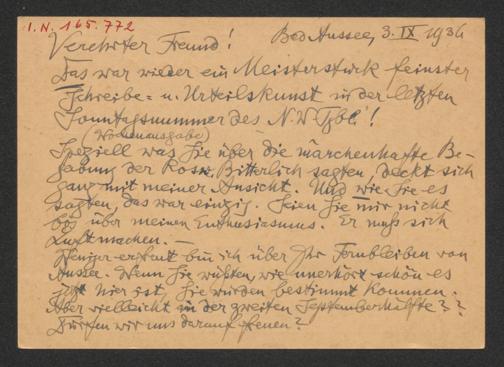 I.N. 165.772
Verehrter Freund! Bad Aussee, 3. IX 1936
Das war wieder ein Meisterstück feinster
Schreibe- u. Urteilskunst in der letzten
Sonntagsnummer des NWTgbl!
(Wochenausgabe)
Speziell was Sie über die märchenhafte Be-
gabung der Rosw. Bitterlich sagten, deckt sich
ganz mit meiner Ansicht. Und wie Sie es
sagten, das war einzig. Seien Sie mir nicht
bös über meinen Enthusiasmus. Er muß sich
Luft machen. —
Weniger erfreut bin ich über Ihr Fernbleiben von
Aussee. Wenn Sie wüßten, wie unerhört schön es
jetzt hier ist, Sie würden bestimmt kommen.
Aber vielleicht in der zweiten Septemberhälfte??
Dürfen wir uns darauf freuen?